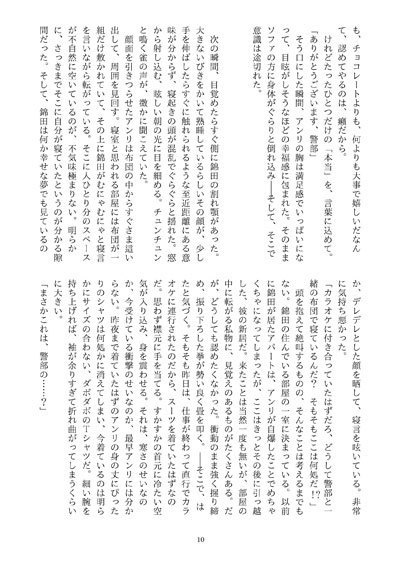 も、チョコレートよりも、何よりも大事で嬉しいだなん
て、認めてやるのは、癪だから。
けれどたったひとつだけの「本当」を、言葉に込めて。
「ありがとうございます、警部」
そう口にした瞬間、アンリの胸は満足感でいっぱいにな
って、目眩がしそうなほどの幸福感に包まれた。そのまま
ソファの方に身体がぐらりと倒れ込み――そして、そこで
意識は途切れた。
次の瞬間、目覚めたらすぐ側に錦田の割れ顎があった。
大きないびきをかいて熟睡しているらしいその顔が、少し
手を伸ばしたらすぐに触れられるような至近距離にある意
味が分からず、寝起きの頭が混乱でぐらぐらと揺れた。窓
から射し込む、眩しい朝の光に目を細める。チュンチュン
と鳴く雀の声が、微かに聞こえていた。
顔面を引きつらせたアンリは布団の中からすぐさま這い
出して、周囲を見回す。寝室と思われる部屋には布団が一
組だけ敷かれていて、その上に錦田がむにゃむにゃと寝言
を言いながら転がっている。そこに人ひとり分のスペース
が不自然に空いているのが、不気味極まりない。明らか
に、さっきまでそこに自分が寝ていたというのが分かる隙
間だった。そして、錦田は何か幸せな夢でも見ているの
か、デレデレとした顔を晒して、寝言を呟いている。非常
に気持ち悪かった。
「カラオケに付き合っていたはずだろ、どうして警部と一
緒の布団で寝ているんだ？　そもそもここは何処だ!?」
頭を抱えて絶叫するものの、そんなことは考えるまでも
ない。錦田の住んでいる部屋の一室に決まっている。以前
に錦田が居たアパートは、アンリが自爆したことでめちゃ
くちゃになってしまったが、ここはきっとその後に引っ越
した、彼の新居だ。来たことは当然一度も無いが、部屋の
中に転がる私物に、見覚えのあるものがたくさんある。だ
が、どうしても認めたくなかった。衝動のまま強く握り締
め、振り下ろした拳が勢い良く畳を叩く。――そこで、は
たと気づく。そもそも昨日は、仕事が終わって直行でカラ
オケに連行されたのだから、スーツを着ていたはずなの
だ。思わず襟元に手を当てる。すかすかの首元に冷たい空
気が入り込み、身を震わせる。それは、寒さのせいなの
か、今受けている衝撃のせいなのか、最早アンリには分か
らない。昨夜まで着ていたはずのアンリの身の丈にぴった
りのシャツは何処かに消えてしまい、今着ているのは明ら
かにサイズの合わない、ダボダボのTシャツだ。細い腕を
持ち上げれば、袖が余りすぎて折れ曲がってしまうくらい
に大きい。
「まさかこれは、警部の……？」
10